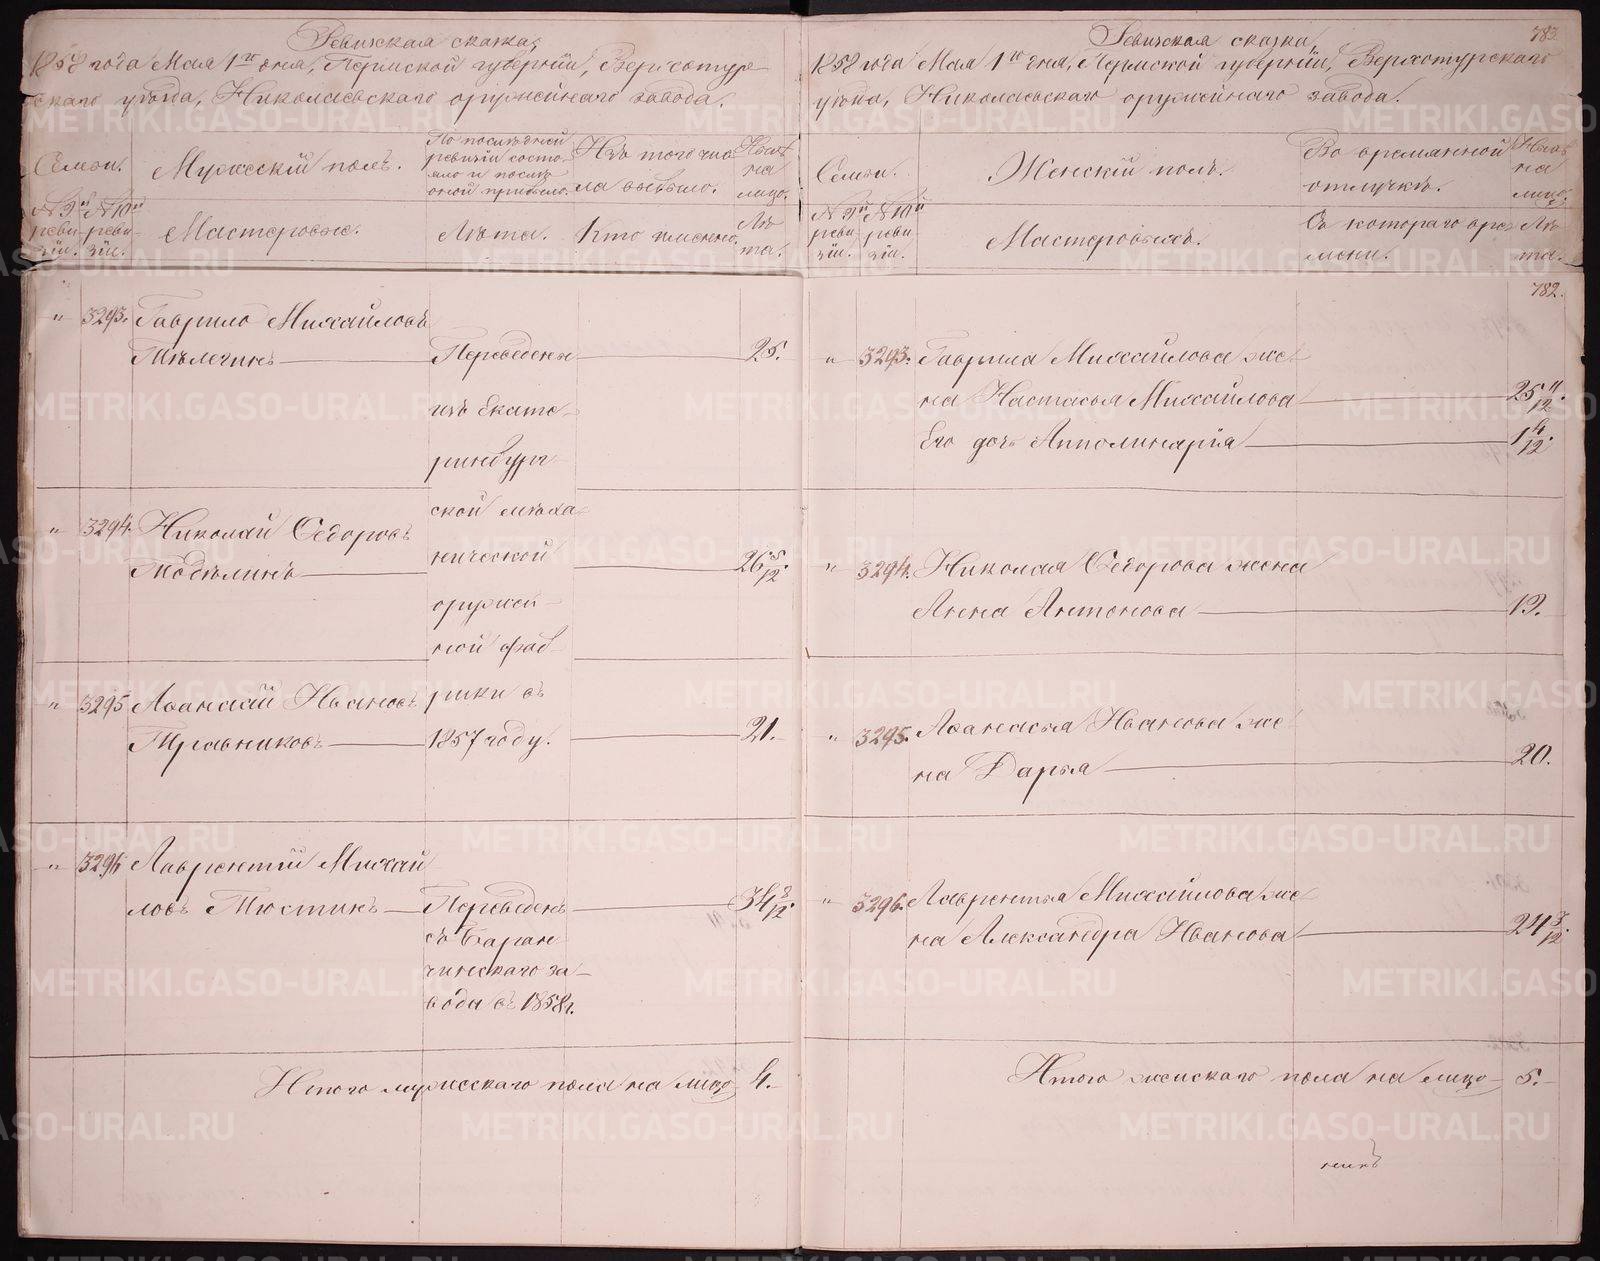 Ревизская сказка,
1858 года Мая 1го дня, Пермской губернiи, Верхотур
скаго уѣзда, Николаевскаго оружейнаго завода.
Семьи.
Мужескiй полъ.
По послѣдней
ревизiи состо-
яло и послѣ
оной прибыло.
Изъ того чис-
ла выбыло.
Нынѣ
на
лицо.
№ 9й
реви-
зiи.
№ 10й
реви-
зiи.
Мастеровые.
Лѣта.
Кто именно.
Лѣ
та.
" 3293. Гаврило Михайловъ
Мѣлегинъ Переведены 25.
изъ Екате-
ринбург-
ской меха
нической
оружей-
ной фаб-
рики въ
1857 году.
" 3294. Николай Ѳедоровъ
26 5/12.
" 3295 Аѳанасiй Ивановъ
Травниковъ 21.
" 3296 Лаврентiй Михай
ловъ Тюстинъ Переведенъ 34 8/12.
съ Баран
чинскаго за-
вода въ 1858 г.
Итого мужескаго пола на лицо 4.
783
Ревизская сказка,
1858 года Мая 1го дня, Пермской губернiи, Верхотурскаго
уѣзда, Николаевскаго оружейнаго завода.
Семьи.
Женскiй полъ.
Во временной
отлучкѣ.
Нынѣ
на
лицо.
№ 9й
реви-
зiи.
№ 10й
реви-
зiи.
Мастеровыхъ.
Съ котораго вре-
мени.
Лѣ
та.
782.
" 3293. Гаврила Михайлова же
на Настасья Михайлова 25 11/12.
Его дочь Апполинарiя 1 4/12.
" 3294. Николая Ѳедорова жена
Анна Антонова 19.
" 3295. Аѳанасья Иванова же
на Дарья 20.
" 3296. Лаврентья Михайлова же
на Александра Иванова 24 3/12.
Итого женскаго пола на лицо 5.
никъ
METRIKI.GASO-URAL.RU